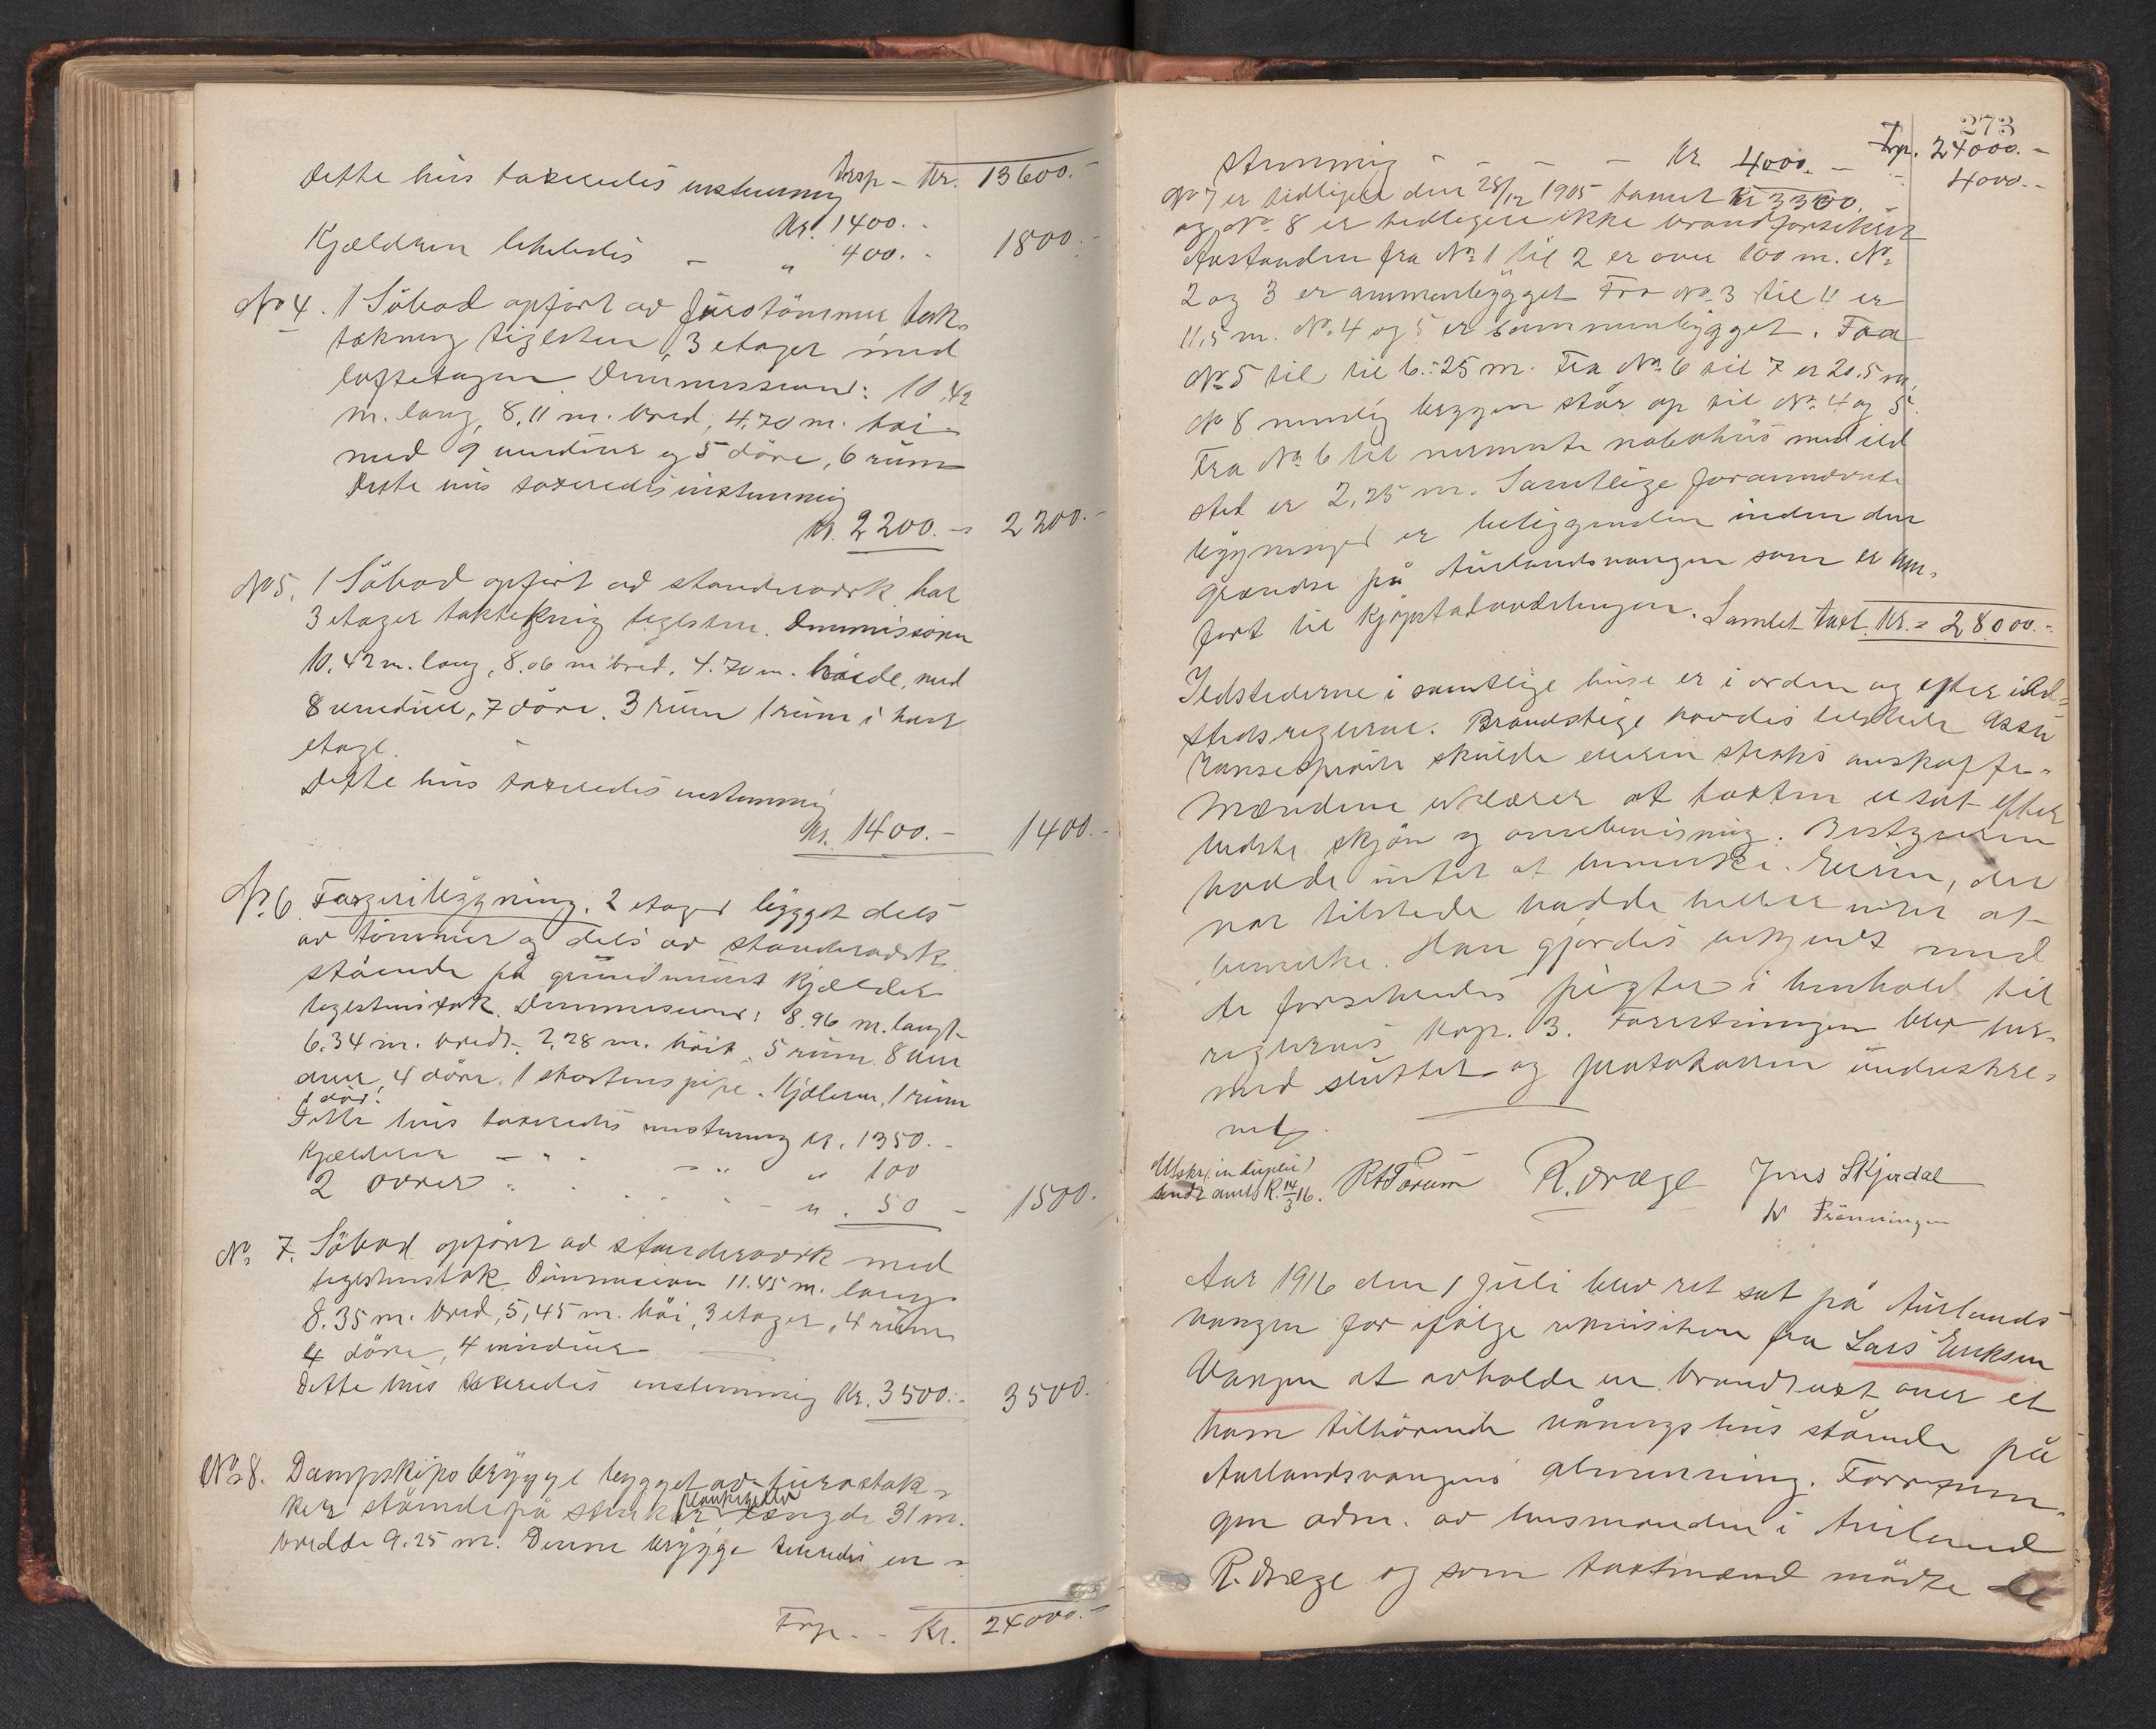 Trsp - Kr. 13600.-
Dette hus taxeredes enstemmig
Kr. 1400.-
Kjælderen ligeledes - " 400.- 1800.-
No 4. 1 Söbod opfört av furutömmer, tak-
tækning tiglsten, 3 etager med
loftetagen Dimmissioner: 10,42
m. lang, 8,11 m. bred, 4,70 m. höi
med 9 vinduer og 5 döre, 6 rum
Dette hus taxeredes enstemmig
Kr. 2200.- 2200.-
No 5. 1 Söbod opfört av stenderværk har
3 etager taktekning teglsten. Dimmissioner
10.42 m. lang, 8.06 m bred, 4.70 m. høide, med
8 vinduer, 7 döre. 3 rum 1 rum i hver
etage.
Dette hus taxeredes enstemmig
Kr. 1400.- 1400.-
No. 6 Fargeribygning. 2 etager bygget dels
av tömmer og dels av stenderværk
stående på grundmuret kjælder
teglstenstak. Dimmissioner: 8.96 m. langt
6.34 m. bredt. 2.28 m. höit, 5 rum 8 vin
duer, 4 döre. 1 skorstenspipe. Kjelleren, 1 rum
1 dör.
Dette hus taxeredes enstemmig kr. 1350.-
Kjælderen - " - " " 100
2 ovner " - " . 50 - 1500.
No. 7. Söbod opfört av stenderværk med
teglstenstak Dimmission 11.45 m. lang
8.35 m. bred, 5,45 m. höi, 3 etager, 4 rum
4 döre, 4 vinduer
Dette hus taxeredes enstemmig Kr. 3500.- 3500.
No. 8. Dampskipsbrygge bygget av furustok-
ker stående på stenkar, plankegulv længde 31 m.
bredde 9.25 m. Denne brygge taxeredes en-
Trsp. - Kr. 24000.-
273
Trp. 24000.-
stemmig - - - - Kr 4000.- - 4000.-
No 7 er tidligere den 28/12 1905 taxeret Kr 3300.
og No. 8 er tidligere ikke brandforsikret
Avstanden fra No. 1 til 2 er over 100 m. No.
2 og 3 er ammenbygget Fra No. 3 til 4 er
11,5 m. No. 4 og 5 er sammenbygget. Fra
No. 5 til til 6.: 25 m. Fra No. 6 til 7 er 20.5 m.
No 8 nemlig bryggen står op til No. 4 og 5.
Fra No. 6 til nærmeste nabohus med ild
sted er 2,25 m. Samtlige forannævnte
bygninger er beliggende inden den
grændse på Aurlandsvangen som er hen-
fört til kjöpstadavdelingen. Samlet taxt. Kr. = 28000.-
Ildstederne i samtlige huse er i orden og efter ild-
stedsreglerne. Brandstige havdes tilstede Assu
ranseprøite skulde eieren straks anskaffe.
Mændene erklærer at taxten er sat efter
bedste skjön og overbevisning. Bestyreren
hadde intet at bemerke. Eieren, der
var tilstede hadde heller intet at
bemerke. Han gjordes bekjendt med
de forsikredes pligter i henhold til
reglernes kap. 3. Forretningen blev her-
med sluttet og protokollen underskre-
vet.
Utskr. (in duplo)
sendt amtet R. 14/3 16. R Forum R. Dræge Jens Skjerdal
N Frönningen
Aar 1916 den 1 juli blev ret sat på Aurlands
vangen for ifölge rekvisition fra Lars Eriksen
Vangen at avholde en brandtaxt over et
ham tilhörende våningshus stående på
Aurlandsvangens almenning. Forretnin-
gen adm. av lensmanden i Aurland
R. Dræge og som taxtmænd mödte de